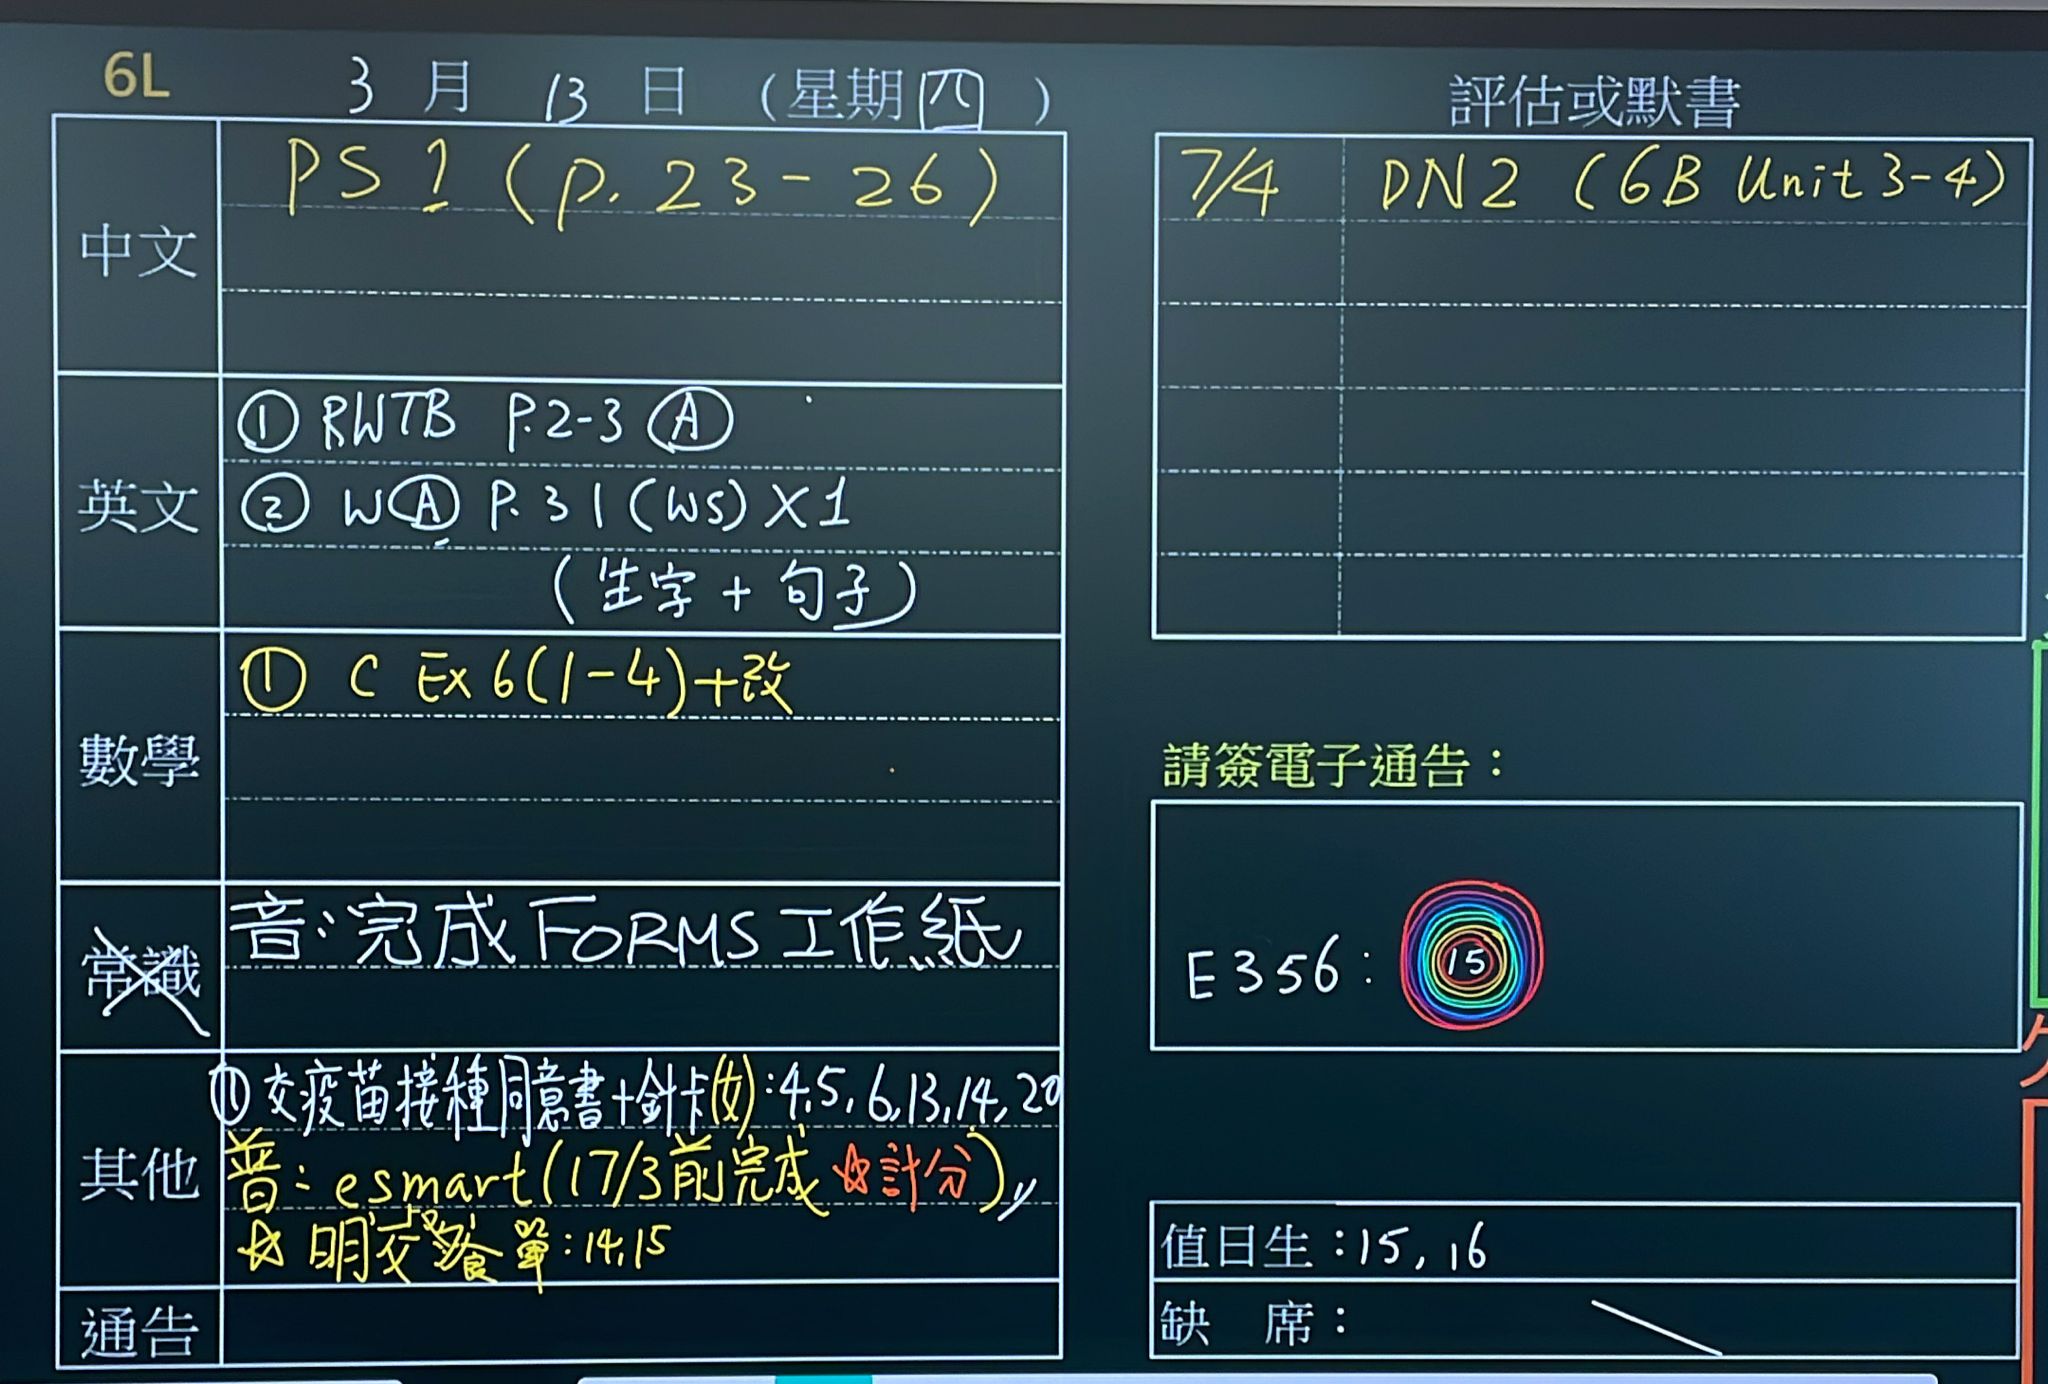 6L 3月13日（星期四）
中文
PS 1 (p. 23 - 26)
英文
① RWTB P.2-3 Ⓐ
② WⒶ P.31 (WS) X1
(生字 + 句子)
數學
① C Ex 6(1-4)+改
常識
音：完成 FORMS 工作紙
其他
① 交疫苗接種同意書+針卡(女)：4,5,6,13,14,20
普：esmart (17/3前完成 ☆計分)
☆ 明交餐單：14,15
通告
評估或默書
7/4 DN2 (6B Unit 3-4)
請簽電子通告：
E356： 15
值日生：15, 16
缺 席：